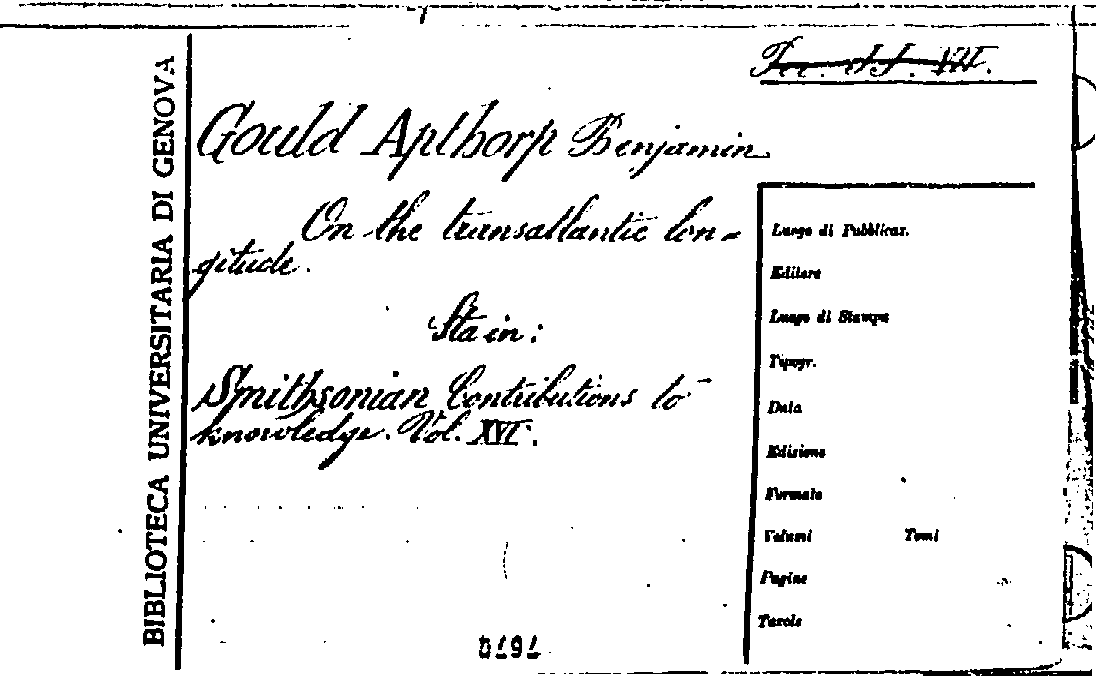 BIBLIOTECA UNIVERSITARIA DI GENOVA
Gould Apthorp Benjamin
On the transatlantic lon-
gitude.
Sta in:
Smithsonian Contributions to
knowledge. Vol. XVI.
Luogo di Pubblicaz.
Editore
Luogo di Stampa
Tipogr.
Data
Edizione
Formato
Volumi Tomi
Pagine
Tavole